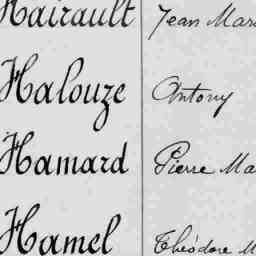 Hairault Jean
Halouze Antony
Hamard Pierre
Hamel Théodore